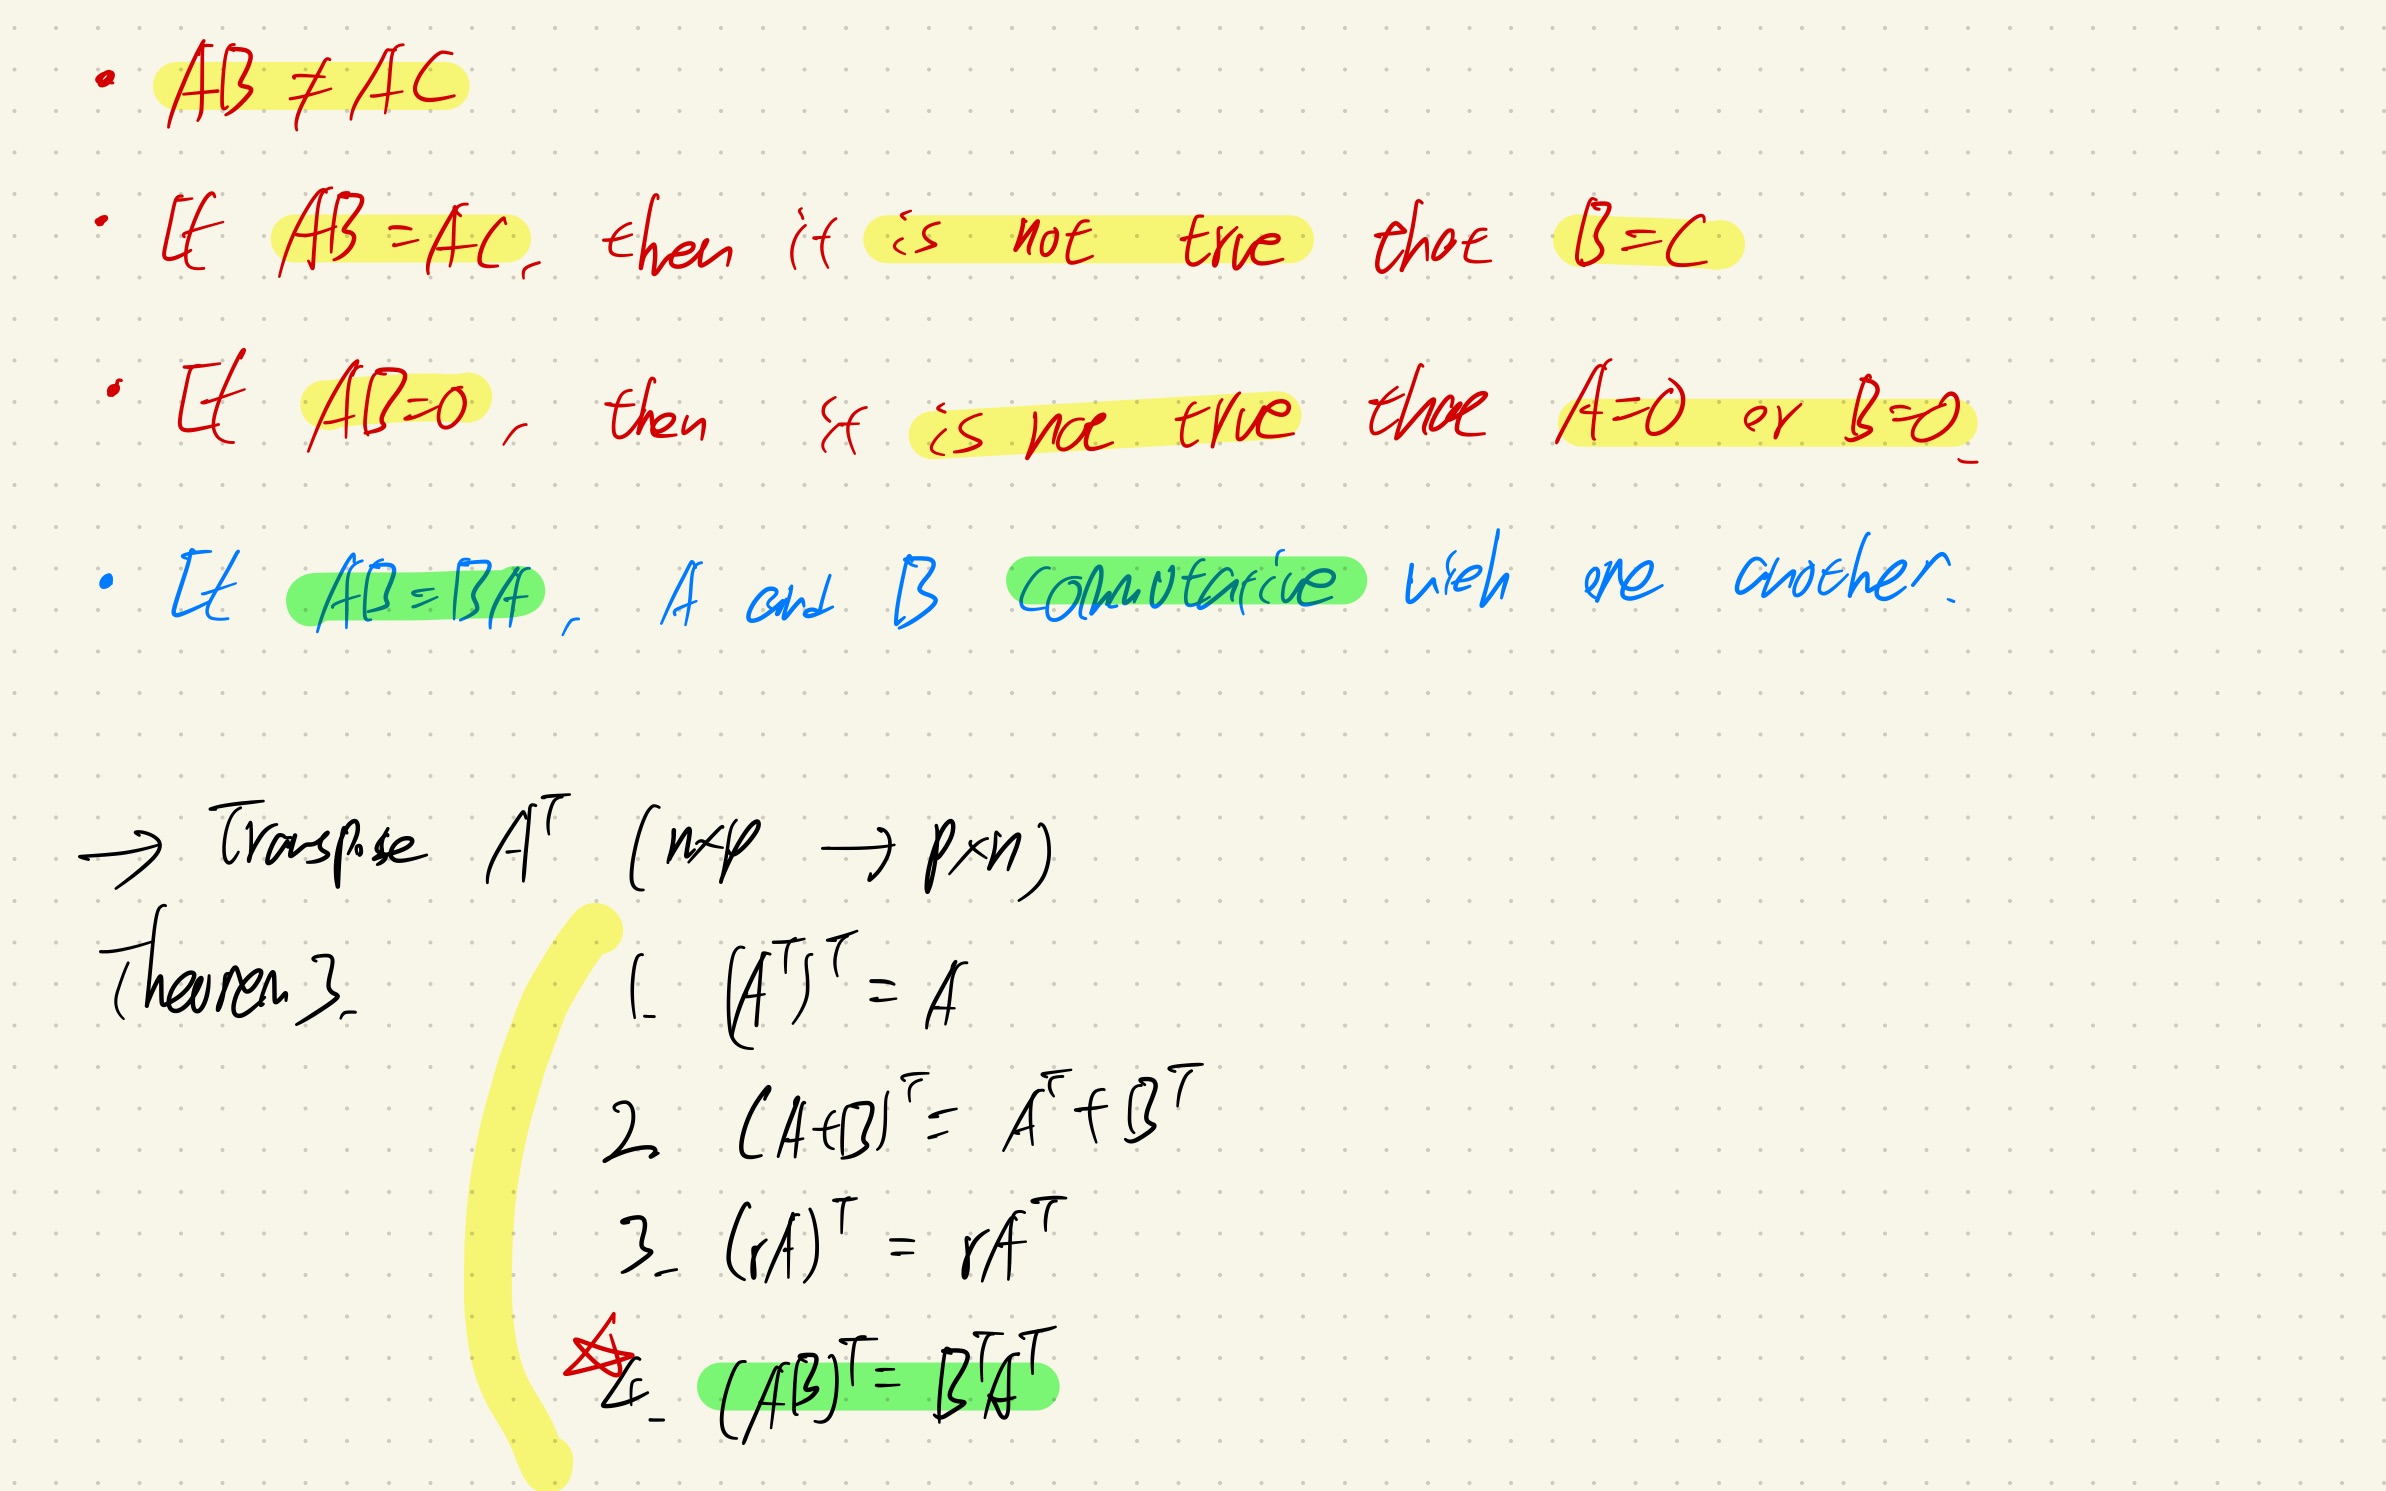 • AB ≠ AC
• If AB = AC, then it is not true that B = C
• If AB = 0, then it is not true that A = 0 or B = 0.
• If AB = BA, A and B commutative with one another.
→ Transpose Aᵀ (n×p → p×n)
Theorem 3.
1. (Aᵀ)ᵀ = A
2. (A+B)ᵀ = Aᵀ + Bᵀ
3. (rA)ᵀ = rAᵀ
4. (AB)ᵀ = BᵀAᵀ